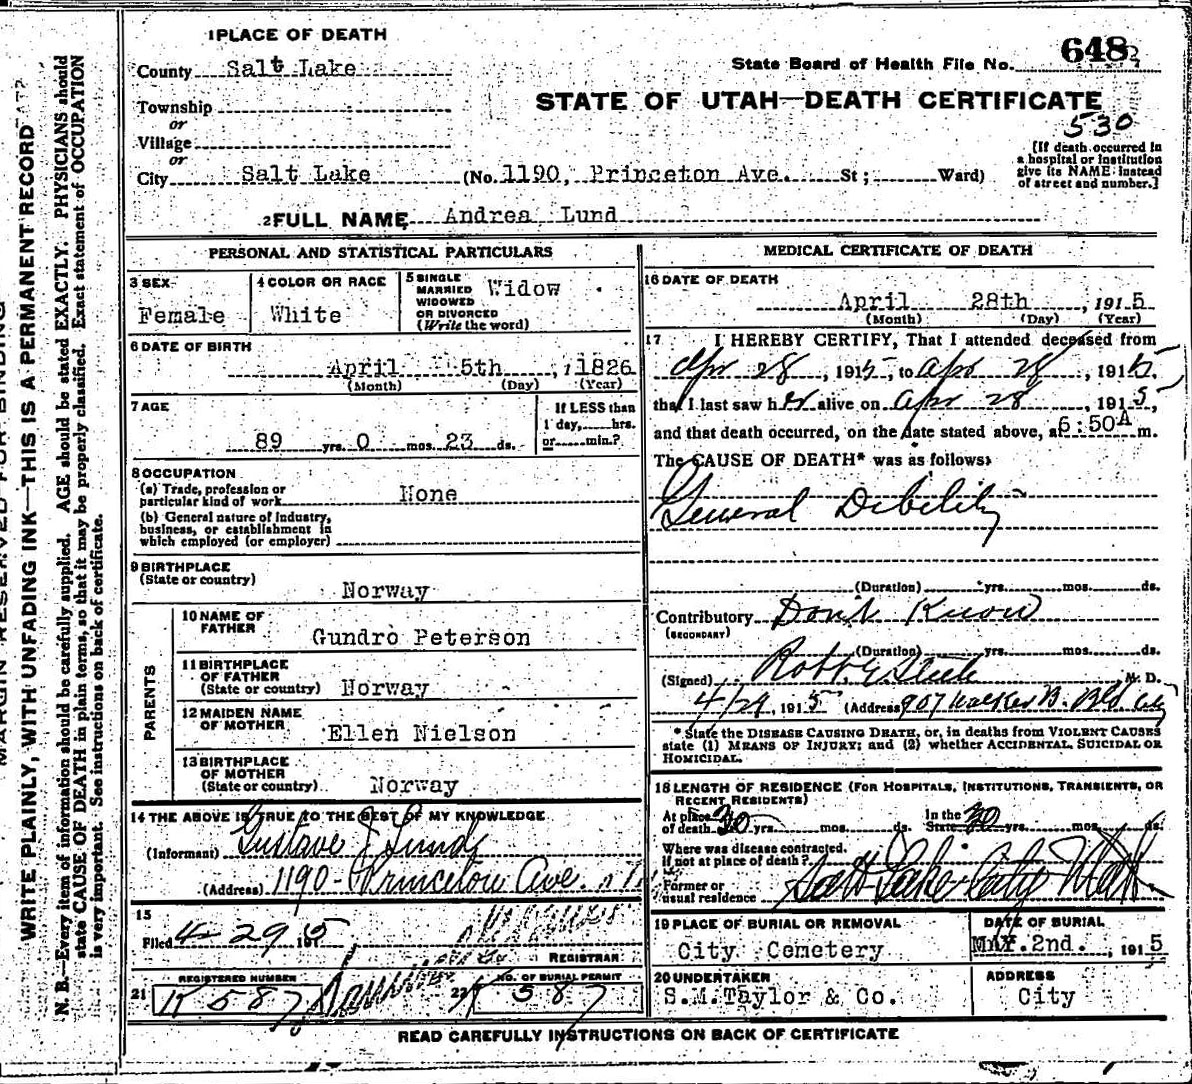 1 PLACE OF DEATH
County Salt Lake
Township
or
Village
or
City Salt Lake (No. 1190, Princeton Ave. St; Ward)
State Board of Health File No. 648
STATE OF UTAH—DEATH CERTIFICATE
530
[If death occurred in
a hospital or institution
give its NAME instead
of street and number.]
2 FULL NAME Andrea Lund
PERSONAL AND STATISTICAL PARTICULARS
3 SEX
Female
4 COLOR OR RACE
White
5 SINGLE
MARRIED
WIDOWED
OR DIVORCED
(Write the word)
Widow
6 DATE OF BIRTH
April 5th, 1826
(Month) (Day) (Year)
7 AGE
89 yrs. 0 mos. 23 ds.
If LESS than
1 day, hrs.
or min.?
8 OCCUPATION
(a) Trade, profession or
particular kind of work None
(b) General nature of Industry,
business, or establishment in
which employed (or employer)
9 BIRTHPLACE
(State or country)
Norway
PARENTS
10 NAME OF
FATHER
Gundro Peterson
11 BIRTHPLACE
OF FATHER
(State or country) Norway
12 MAIDEN NAME
OF MOTHER
Ellen Nielson
13 BIRTHPLACE
OF MOTHER
(State or country) Norway
14 THE ABOVE IS TRUE TO THE BEST OF MY KNOWLEDGE
(Informant) Gustave J Lund
(Address) 1190 - Princeton Ave.
15
Filed 4-29 1915
REGISTRAR
REGISTERED NUMBER
21 K 587
NO. OF BURIAL PERMIT
22 K 587
MEDICAL CERTIFICATE OF DEATH
16 DATE OF DEATH
April 28th, 1915
(Month) (Day) (Year)
17 I HEREBY CERTIFY, That I attended deceased from
Apr 28, 1915, to Apr 28, 1915,
that I last saw her alive on Apr 28, 1915,
and that death occurred, on the date stated above, at 6:50 A m.
The CAUSE OF DEATH* was as follows:
General Debility
(Duration) yrs. mos. ds.
Contributory Don't Know
(SECONDARY)
(Duration) yrs. mos. ds.
(Signed) M. D.
4/29, 1915 (Address) 907 Walker B. Bld City
* State the DISEASE CAUSING DEATH, or, in deaths from VIOLENT CAUSES
state (1) MEANS OF INJURY; and (2) whether ACCIDENTAL, SUICIDAL OR
HOMICIDAL.
18 LENGTH OF RESIDENCE (FOR HOSPITALS, INSTITUTIONS, TRANSIENTS, OR
RECENT RESIDENTS)
At place In the
of death 30 yrs. mos. ds. State 30 yrs. mos. ds.
Where was disease contracted,
if not at place of death?
Former or
usual residence Salt Lake City Utah
19 PLACE OF BURIAL OR REMOVAL
City Cemetery
DATE OF BURIAL
MAY. 2nd., 1915
20 UNDERTAKER
S.M. Taylor & Co.
ADDRESS
City
READ CAREFULLY INSTRUCTIONS ON BACK OF CERTIFICATE
MARGIN RESERVED FOR BINDING
WRITE PLAINLY, WITH UNFADING INK—THIS IS A PERMANENT RECORD
N. B.—Every item of information should be carefully supplied. AGE should be stated EXACTLY. PHYSICIANS should
state CAUSE OF DEATH in plain terms, so that it may be properly classified. Exact statement of OCCUPATION
is very important. See instructions on back of certificate.